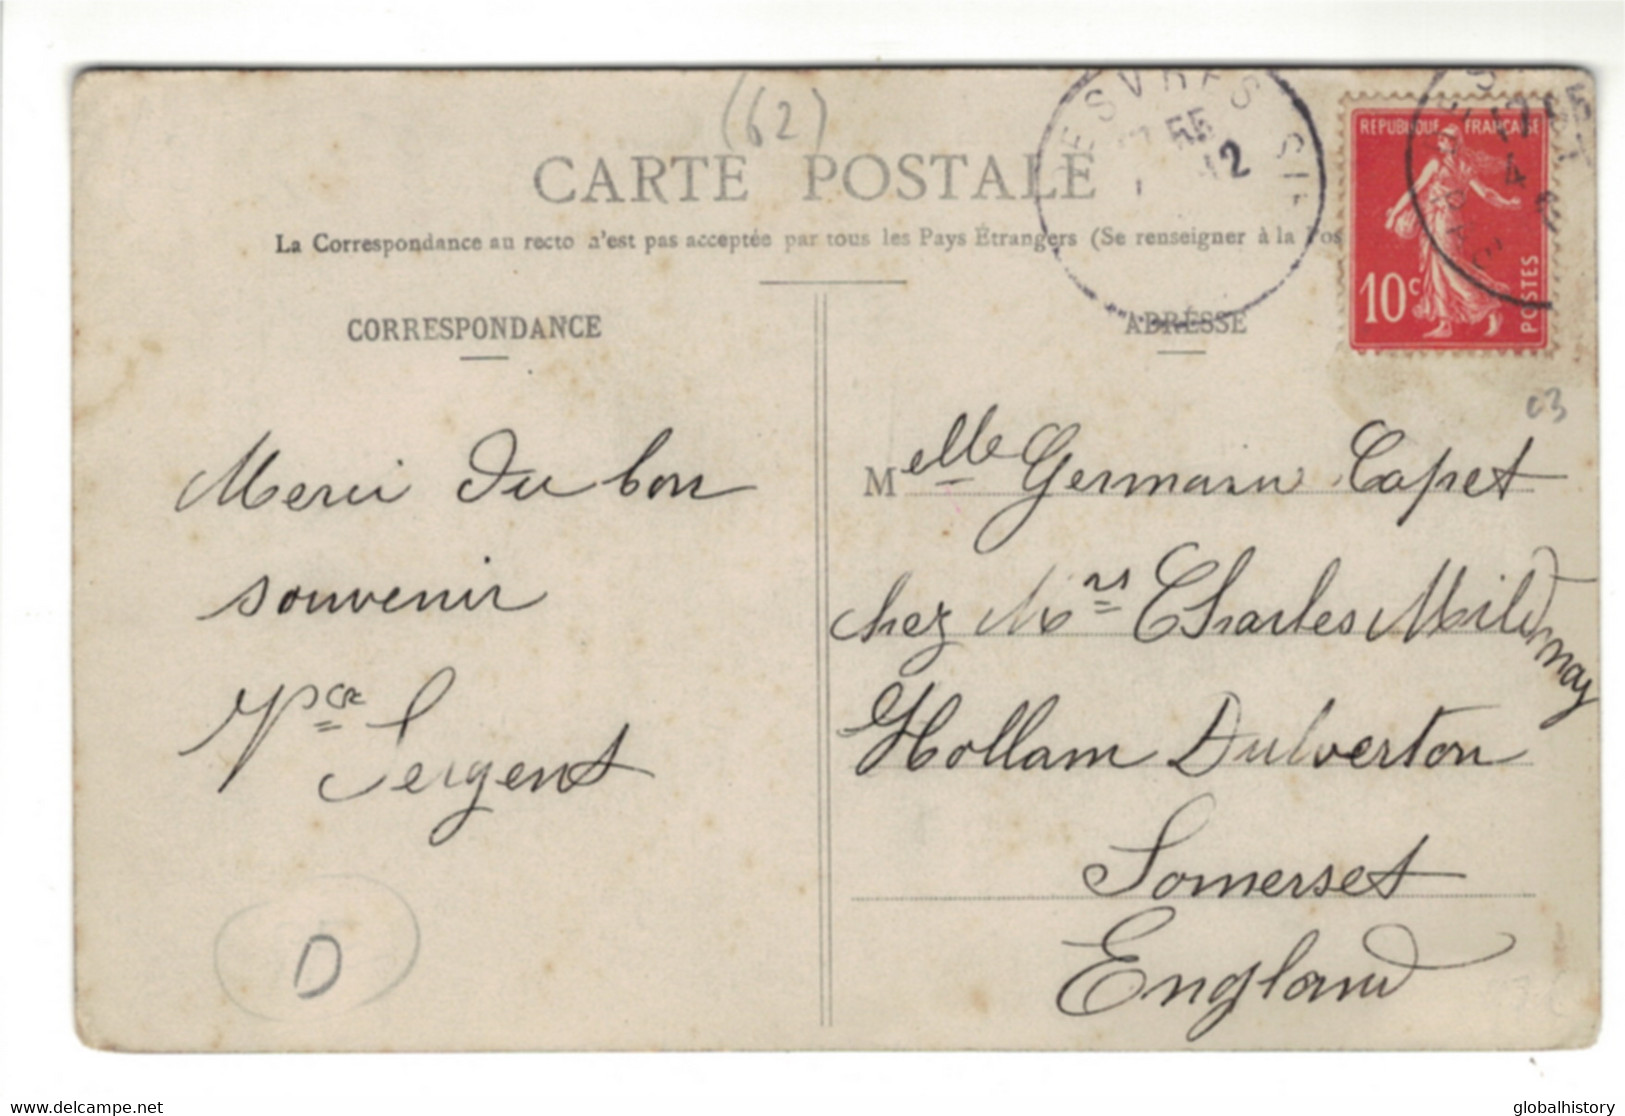 (62)
CARTE POSTALE
La Correspondance au recto n'est pas acceptée par tous les Pays Étrangers (Se renseigner à la Pos
ESVRES
55
12
REPUBLIQUE FRANÇAISE
10c
POSTES
CORRESPONDANCE
ADRESSE
03
Merci du bon
souvenir
Sergent
D
Melle Germain Capet
chez Mrs Charles Mildmay
Hollam Dulverton
Somerset
England
www.delcampe.net
globalhistory